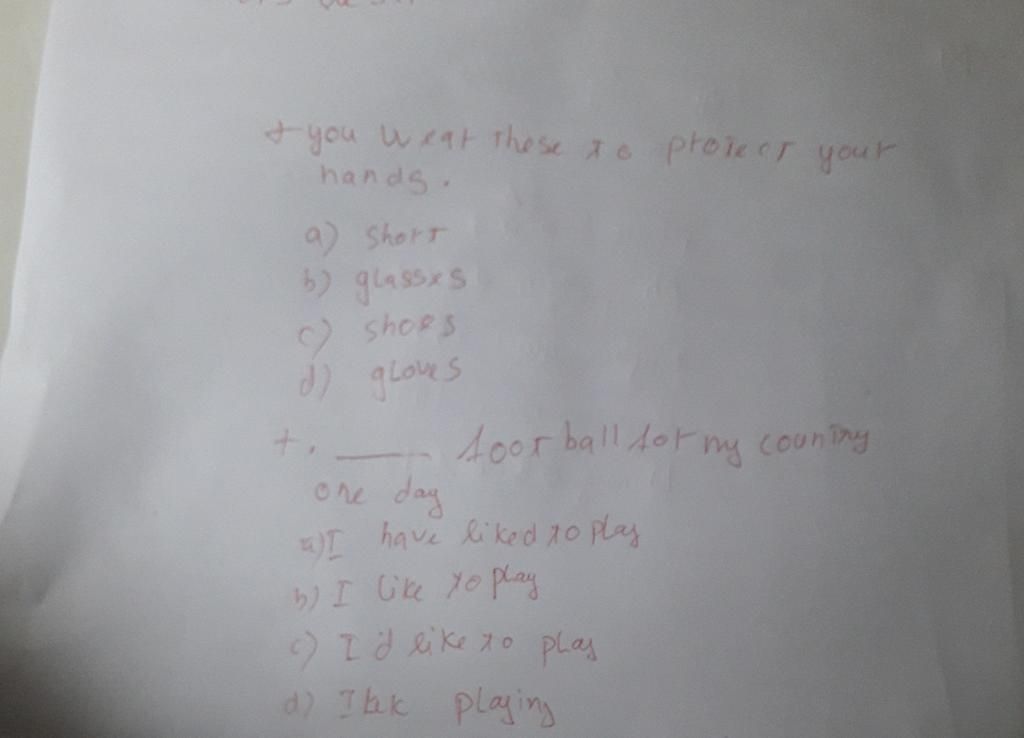 + you wear these to protect your
hands.
a) short
b) glasses
c) shoes
d) gloves
+. ____ foot ball for my country
one day
a) I have liked to play
b) I like to play
c) I'd like to play
d) I like playing